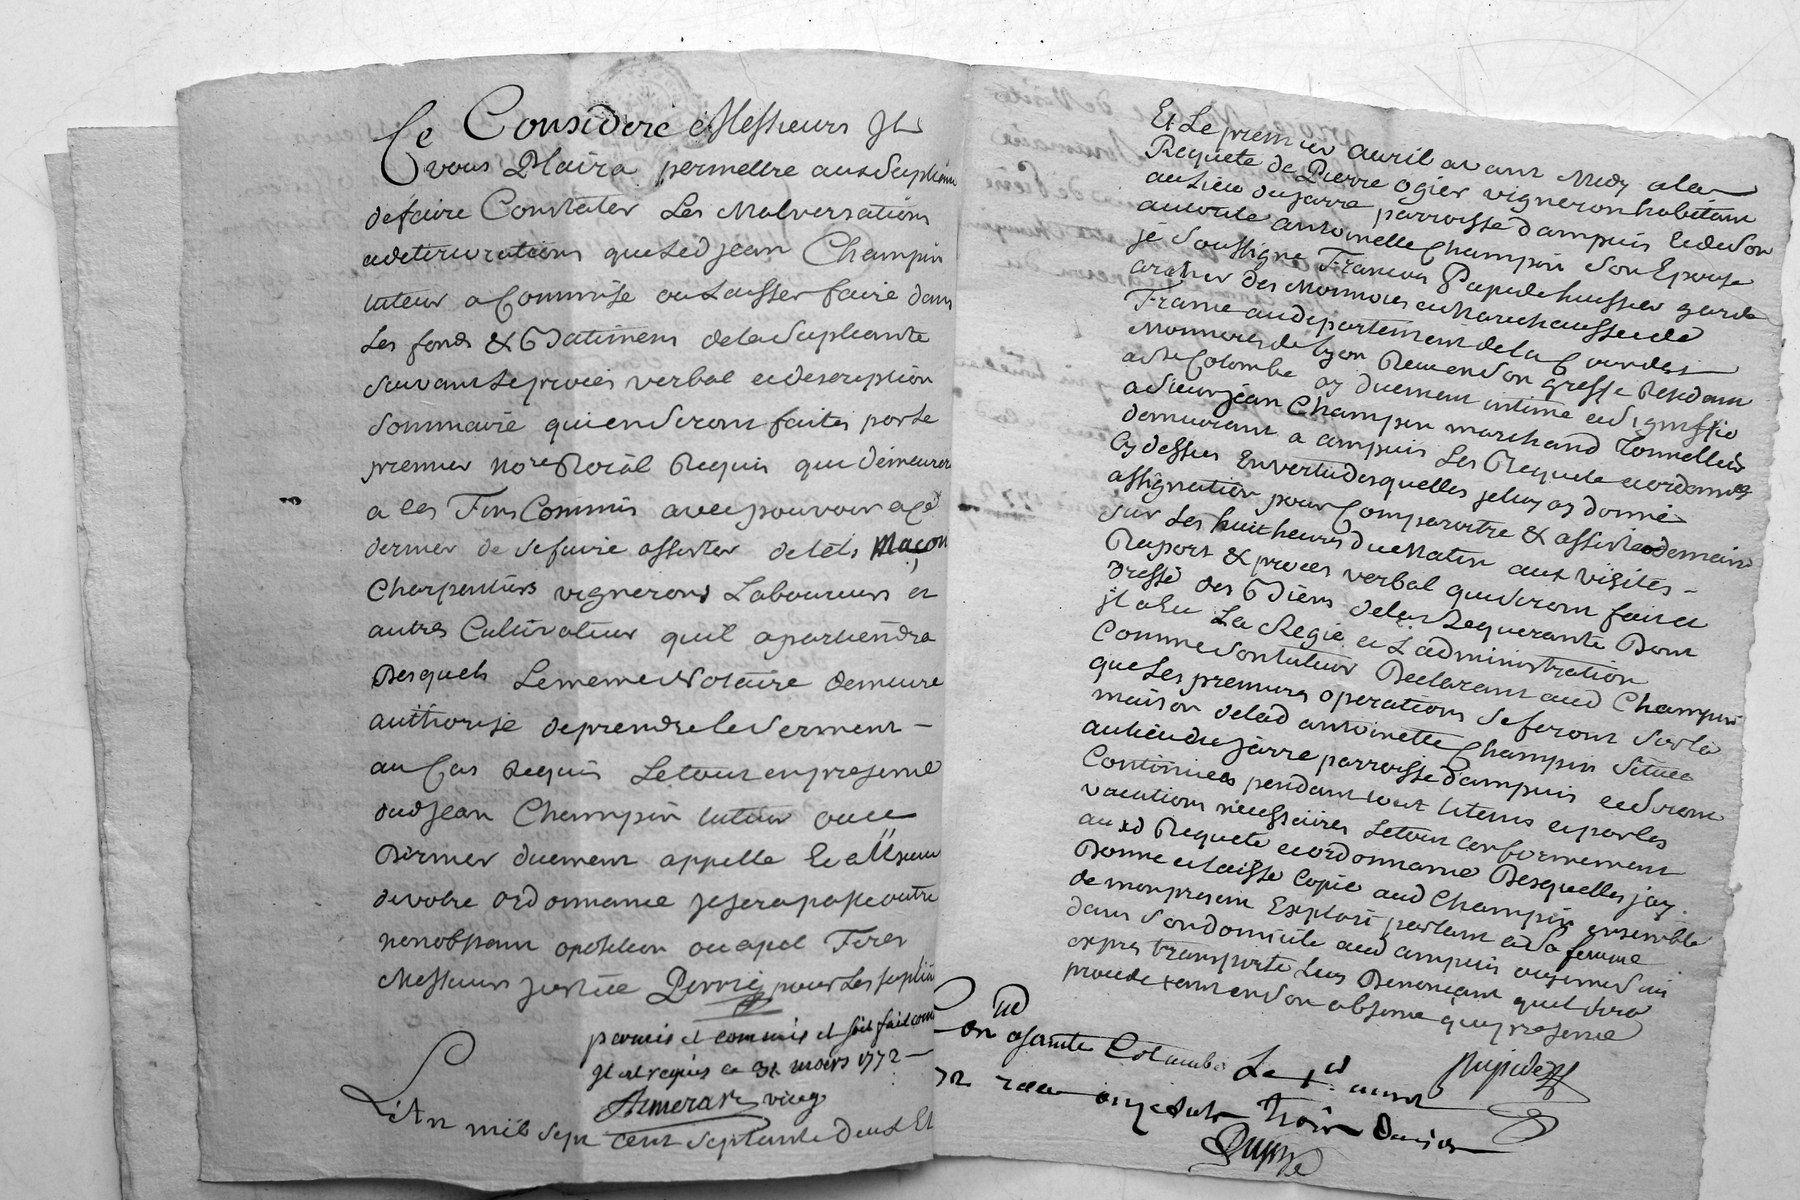 Ce Considere Messieurs Il
vous Plaira permettre aux Supliants
de faire Constater Les Malversations
a deteriorations que Led jean Champin
tuteur a Commise ou Laisser faire dans
Les fonds & Batimens de la Supliante
Suivant Le procès verbal et description
Sommaire qui en Seront faites par le
premier no.re Roial Requis que demeurera
a ces Fins Commis avec pouvoir a ce
dernier de se faire assister de tels Maçon
Charpentiers vignerons Laboureurs et
autres Cultivateur quil apartiendra
Desquels Le meme Notaire demeure
authorisé de prendre le Serment -
au Cas Requis Le tout en presence
dud jean Champin tuteur ou ce
Dernier duement appellé Et Messieurs
de votre ordonnance Sera passé outre
nonobstant oposition ou apel Ferés
Messieurs justice pour Les supliants
permis et commis et soit fait comme
Il est requis ce 31 mars 1772 -
Armerat viceg
L'An mil sept cent septante Deux Et
Et Le premier avril avant Midy a la
Requete de Pierre ogier vigneron habitant
au Lieu du jarre parroisse dampuis Et de Son
autorité antoinette Champin Son Epouse
je Soussigné François huissier garde
archer des Monnoies et Marechaussée de
France au departement de la Cour des
Monnoies de Lyon Receu en Son greffe Residant
a Ste Colombe ay duement intimé et Signiffié
a Sieur jean Champin marchand Tonnellier
demeurant a ampuis Les Requete et ordonnance
Cy dessus En vertu desquelles je luy ay donné
assignation pour Comparoitre & assister demain
Sur Les huit heures du Matin aux visites -
Raport & procès verbal qui Seront fait et
Dressé des Biens de la Requerante Dont
il a Eu La Regie et L'administration
Comme Son tuteur Declarant aud Champin
que Les premieres operations Se feront Sur la
maison de lad antoinette Champin Situee
au Lieu du jarre parroisse d'ampuis et Seront
Continuees pendant tout Le tems et par les
vacations necessaires Le tout conformement
aux d Requete et ordonnance Desquelles jay
Donné et laissé Copie aud Champin ensemble
de mon present Exploit parlant a Sa femme
dans Son domicile aud ampuis ou je me Suis
expres transporté Luy Denonçant quil Sera
procédé tant en Son absence quen presence
on a Sainte Colombe Le 1er avril
72 receu onze sols Trois deniers